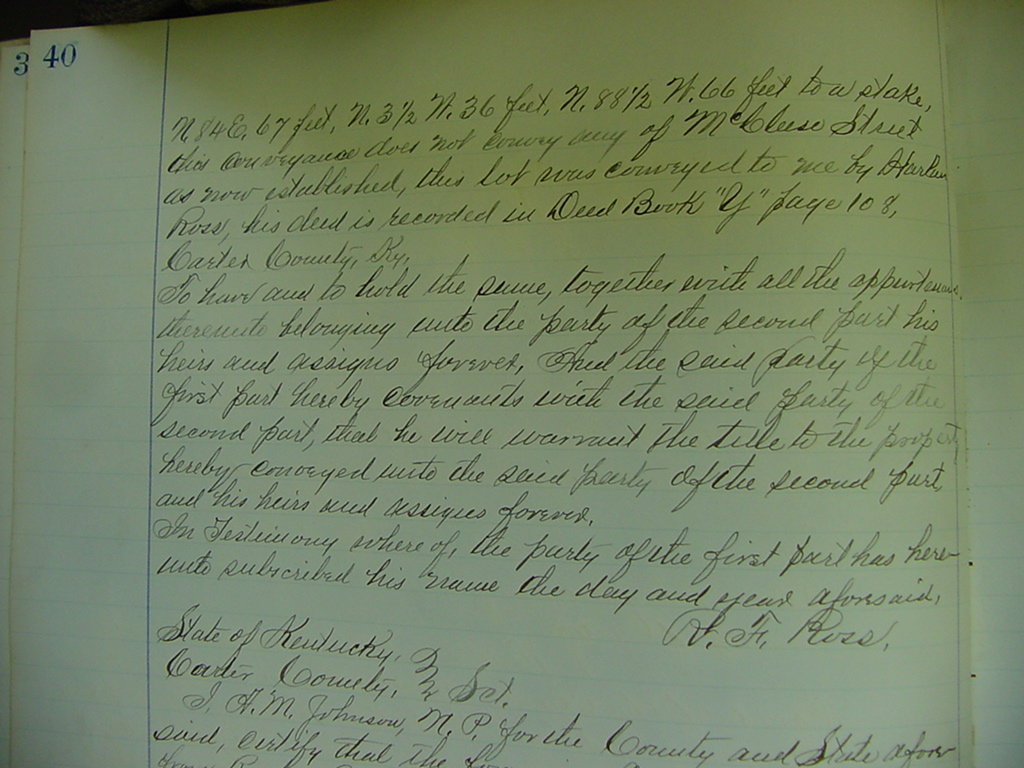 3 40
N. 84 E. 67 feet, N. 3 1/2 W. 36 feet, N. 88 1/2 W. 66 feet to a stake,
this conveyance does not convey any of Street
as now established, this lot was conveyed to me by
Ross, his deed is recorded in Deed Book "Y" page 108,
Carter County, Ky.
To have and to hold the same, together with all the
thereunto belonging unto the party of the second part his
heirs and assigns forever, And the said party of the
first part hereby covenants with the said party of the
second part, that he will warrant the title to the property
hereby conveyed unto the said party of the second part,
and his heirs and assigns forever.
In Testimony where of, the party of the first part has here-
unto subscribed his name the day and year aforesaid,
F. Ross,
State of Kentucky,
Carter County, Sct.
I, A. M. Johnson, N. P. for the County and State afore-
said, certify that the